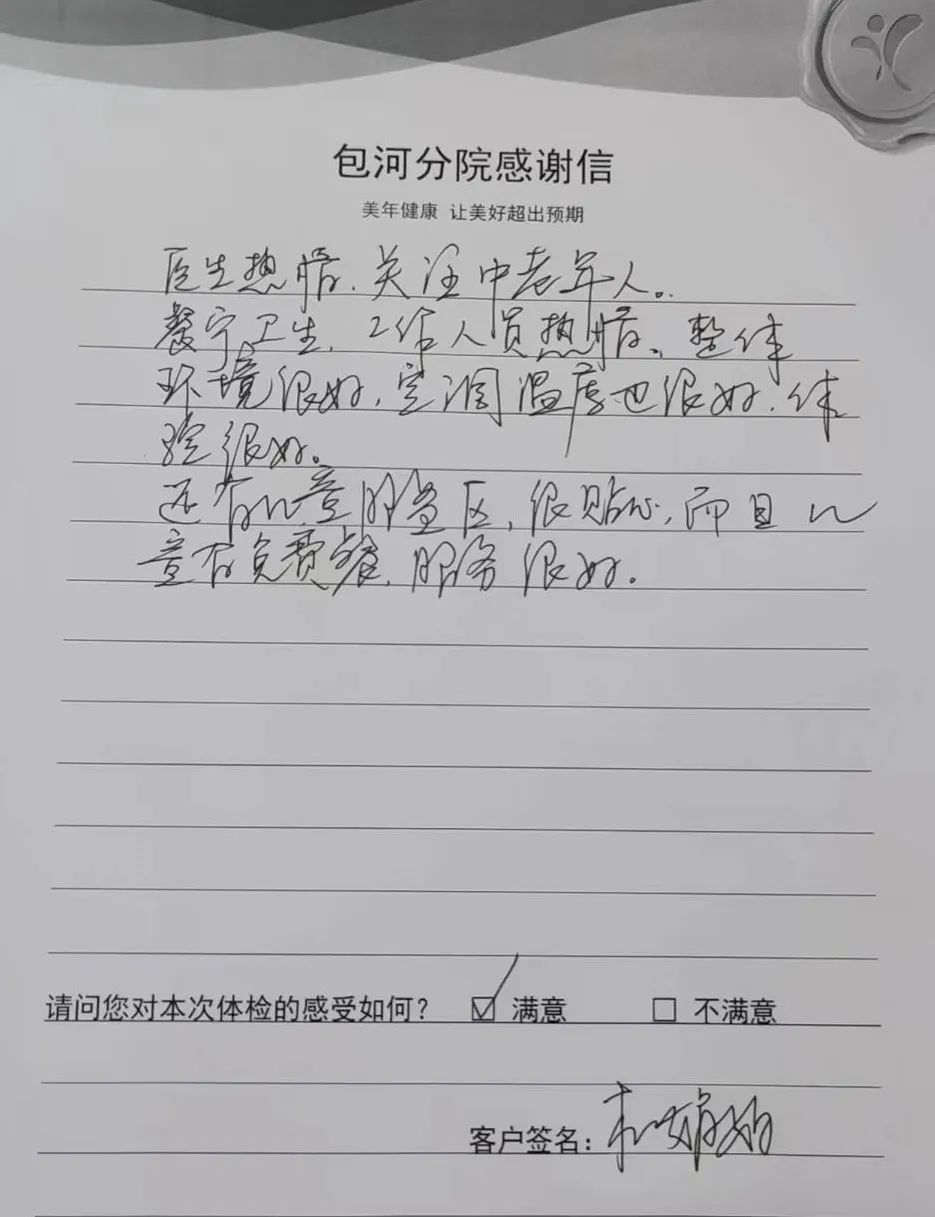 包河分院感谢信
美年健康 让美好超出预期
医生热情、关注中老年人。
餐宁卫生、工作人员热情、整体
环境很好,空调温度也很好,体
验很好。
还有儿童服务区,很贴心,而且儿
童有免费餐,服务很好。
请问您对本次体检的感受如何? ☑ 满意 □ 不满意
客户签名: